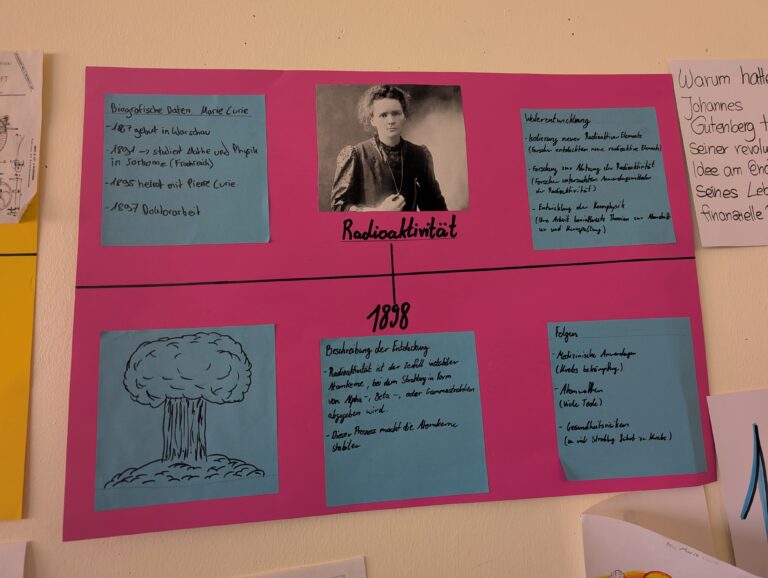 Biografische Daten Marie Curie
- 1867 geburt in Warschau
- 1891 → studiert Mathe und Physik
in Sorbonne (Frankreich)
- 1895 heirat mit Pierre Curie
- 1897 Doktorarbeit
Radioaktivität
1898
Weiterentwicklung
- Isolierung neuer Radioaktiver Elemente
(Forscher entdeckten neue radioaktive Elemente)
- Forschung zur Nutzung der Radioaktivität
(Forscher untersuchten Anwendungsmethoden
der Radioaktivität)
- Entwicklung der Kernphysik
(Ihre Arbeit beeinflusste Theorien zur
und Kernspaltung)
Beschreibung der Entdeckung
- Radioaktivität ist der Zerfall instabiler
Atomkerne, bei dem Strahlung in Form
von Alpha-, Beta-, oder Gammastrahlen
abgegeben wird.
- Dieser Prozess macht die Atomkerne
stabiler
Folgen
- Medizinische Anwendungen
(Krebs bekämpfung)
- Atomwaffen
(Viele Tode)
- Gesundheitsrisiken
(zu viel Strahlung führt zu Krebs)
Warum hatte
Johannes
Gutenberg
seiner
Idee am
seines
finanzielle